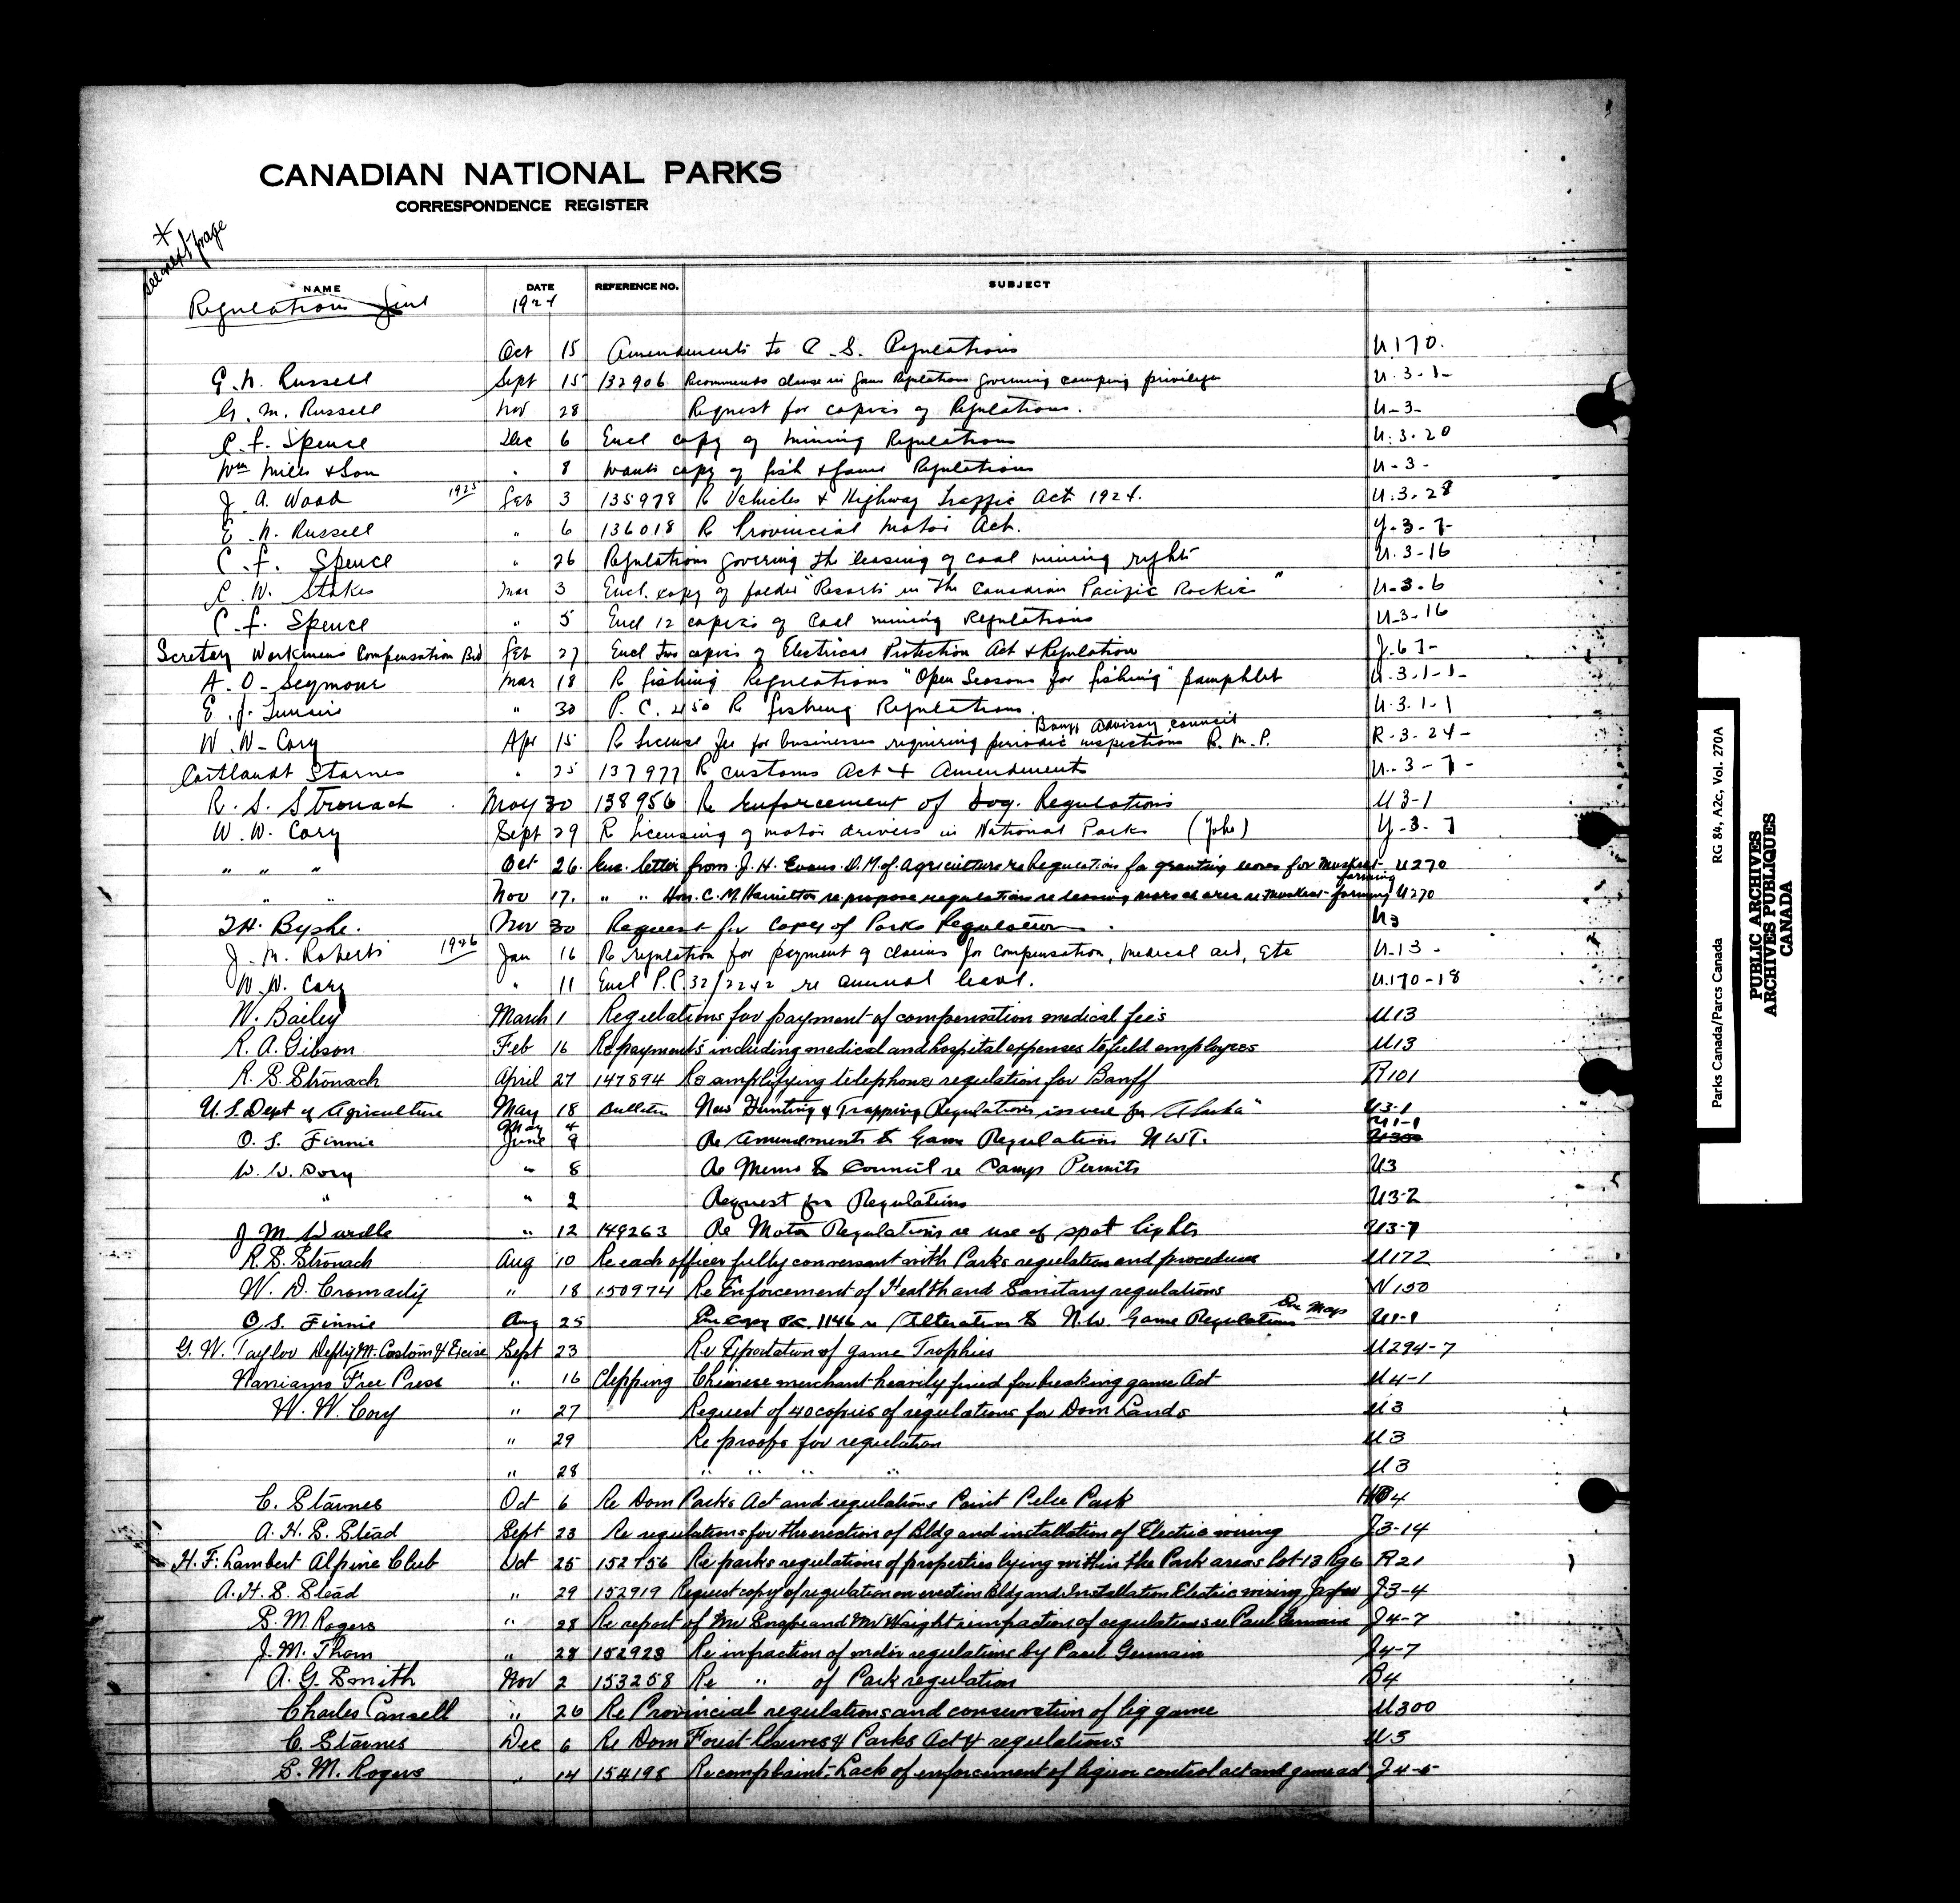 CANADIAN NATIONAL PARKS
CORRESPONDENCE REGISTER
* See next page
NAME DATE REFERENCE NO. SUBJECT
Regulations 1924
Oct 15 Amendments to C. S. Regulations U170.
G. N. Russell Sept 15 132906 Recommends clause in Game Regulations governing camping privilege U-3-1-
G. M. Russell Nov 28 Request for copies of Regulations. U-3-
C. F. Spence Dec 6 Encl copy of Mining Regulations U.3.20
Wm Mills & Son " 8 wants copy of fish & Game Regulations U-3-
J. A. Wood 1925 Feb 3 135978 Re Vehicles & Highway Traffic Act 1924. U.3.28
E. N. Russell " 6 136018 Re Provincial Motor Act. Y-3-7-
C. F. Spence " 26 Regulations governing the leasing of coal mining rights U.3-16
C. W. Stokes Mar 3 Encl. copy of folder "Resorts in the Canadian Pacific Rockies" U-3.6
C. F. Spence " 5 Encl 12 copies of Coal mining Regulations U-3-16
Secretary Workmens Compensation Bd Feb 27 Encl two copies of Electrical Protection Act & Regulation J-67-
A. O. Seymour Mar 18 Re fishing Regulations "Open Seasons for fishing" pamphlet U.3.1-1-
E. J. " 30 P.C. 450 Re fishing Regulations. U.3.1-1
W. W. Cory Apr 15 Re License fee for businesses requiring periodic inspections R.M.P. R-3-24-
Banff Advisory Council
Cortlandt Starnes " 25 137977 Re Customs Act & Amendments U.-3-7-
R. S. Stronach May 30 138956 Re Enforcement of Dog. Regulations U3-1
W. W. Cory Sept 29 Re licensing of motor drivers in National Parks (Yoho) Y-3-7
" " " Oct 26. Enc. letter from J. H. Evans D.M. of Agriculture re Regulation for granting leases for Muskrat farming U270
" " Nov 17. " " Hon. C. M. Hamilton re propose regulations re leasing marsh area re Muskrat-farming U270
T.H. Byshe. Nov 30 Request for Copy of Parks Regulations. U3
J. M. Roberts 1926 Jan 16 Re regulation for payment of claims for compensation, medical aid, etc U-13-
W. W. Cory " 11 Encl P.C. 32/2242 re annual leave. U.170-18
W. Bailey March 1 Regulations for payment of compensation medical fees U13
R. A. Gibson Feb 16 Re payments including medical and hospital expenses to field employees U13
R. S. Stronach April 27 147894 Re amplifying telephone regulation for Banff R101
U.S. Dept of Agriculture May 18 Bulletin New Hunting & Trapping Regulations issued for "Alaska" U3-1
May 4 U1-1
O. S. Finnie June 9 Re Amendments to Game Regulations NWT. U300
W. W. Cory " 8 Re Memo to Council re Camp Permits U3
" " 2 Request for Regulations U3-2
J. M. Wardle " 12 149263 Re Motor Regulations re use of spot lights U3-7
R. S. Stronach Aug 10 Re each officer fully conversant with Parks regulation and procedure U172
W. D. Cromarty " 18 150974 Re Enforcement of Health and Sanitary regulations W150
O. S. Finnie Aug 25 Enc copy P.C. 1146 re Alteration to N.W. Game Regulations Enc Map U1-1
G. W. Taylor Deputy M. Custom & Excise Sept 23 Re Exportation of game Trophies U294-7
Naniamo Free Press " 16 Clipping Chinese merchant heavily fined for breaking game Act U4-1
W. W. Cory " 27 Request of 40 copies of regulations for Dom Lands U3
" 29 Re proofs for regulation U3
" 28 " " " " U3
C. Starnes Oct 6 Re Dom Parks Act and regulations Point Pelee Park 4
A. H. S. Stead Sept 23 Re regulations for the erection of Bldg and installation of Electric wiring J3-14
H. F. Lambert Alpine Club Oct 25 152756 Re parks regulations of properties lying within the Park areas lot-13 Rg 6 R21
A. H. S. Stead " 29 152919 Request copy of regulation on erection Bldg and Installation Electric wiring Jasper J3-4
S. M. Rogers " 28 Re report of Mr and Mr Haight re infraction of regulations re Paul Germain J4-7
J. M. Thom " 28 152923 Re infraction of motor regulations by Paul Germain J4-7
A. G. Smith Nov 2 153258 Re " of Park regulation B4
Charles Cansell " 26 Re Provincial regulations and conservation of big game U300
C. Starnes Dec 6 Re Dom Forest Reserves & Parks Act & regulations U3
S. M. Rogers " 14 154198 Re complaint-Lack of enforcement of liquor control act and game act J4-5
Parks Canada/Parcs Canada RG 84, A2c, Vol. 270A
PUBLIC ARCHIVES
ARCHIVES PUBLIQUES
CANADA